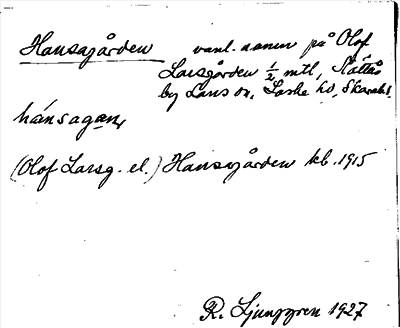 Hansagården vanl. namn på Olof
Larsgården ½ mtl, Slättås
by Lans sn. Laske hd, Skarabl.
hánsagan,
(Olof Larsg. el.) Hansagården kb. 1915
R. Ljunggren 1927